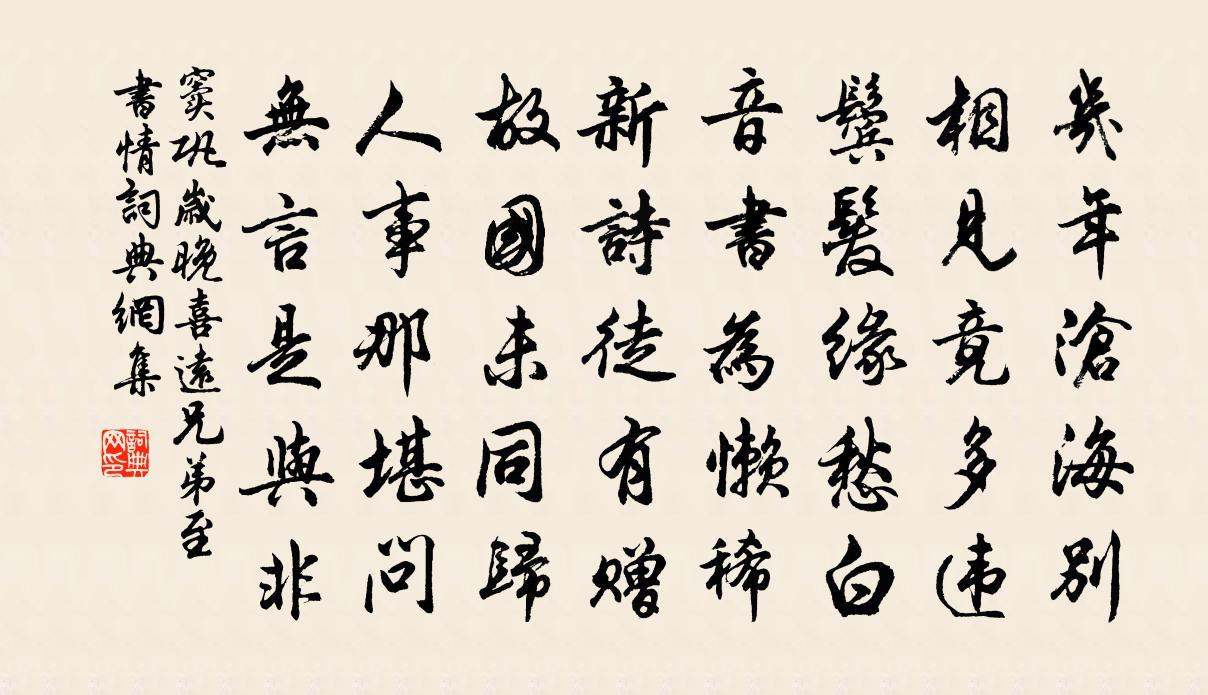 幾年滄海別
相見竟多違
鬢髪緣愁白
音書為懶稀
新詩徒有贈
故國未同歸
人事那堪問
無言是與非
竇巩歲晚喜遠兄弟至
書情詞典網集
詞典
网印